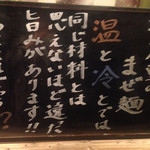 まぜ麺
温と冷とでは
同じ材料とは
思えないほど違った
旨みがあります!!